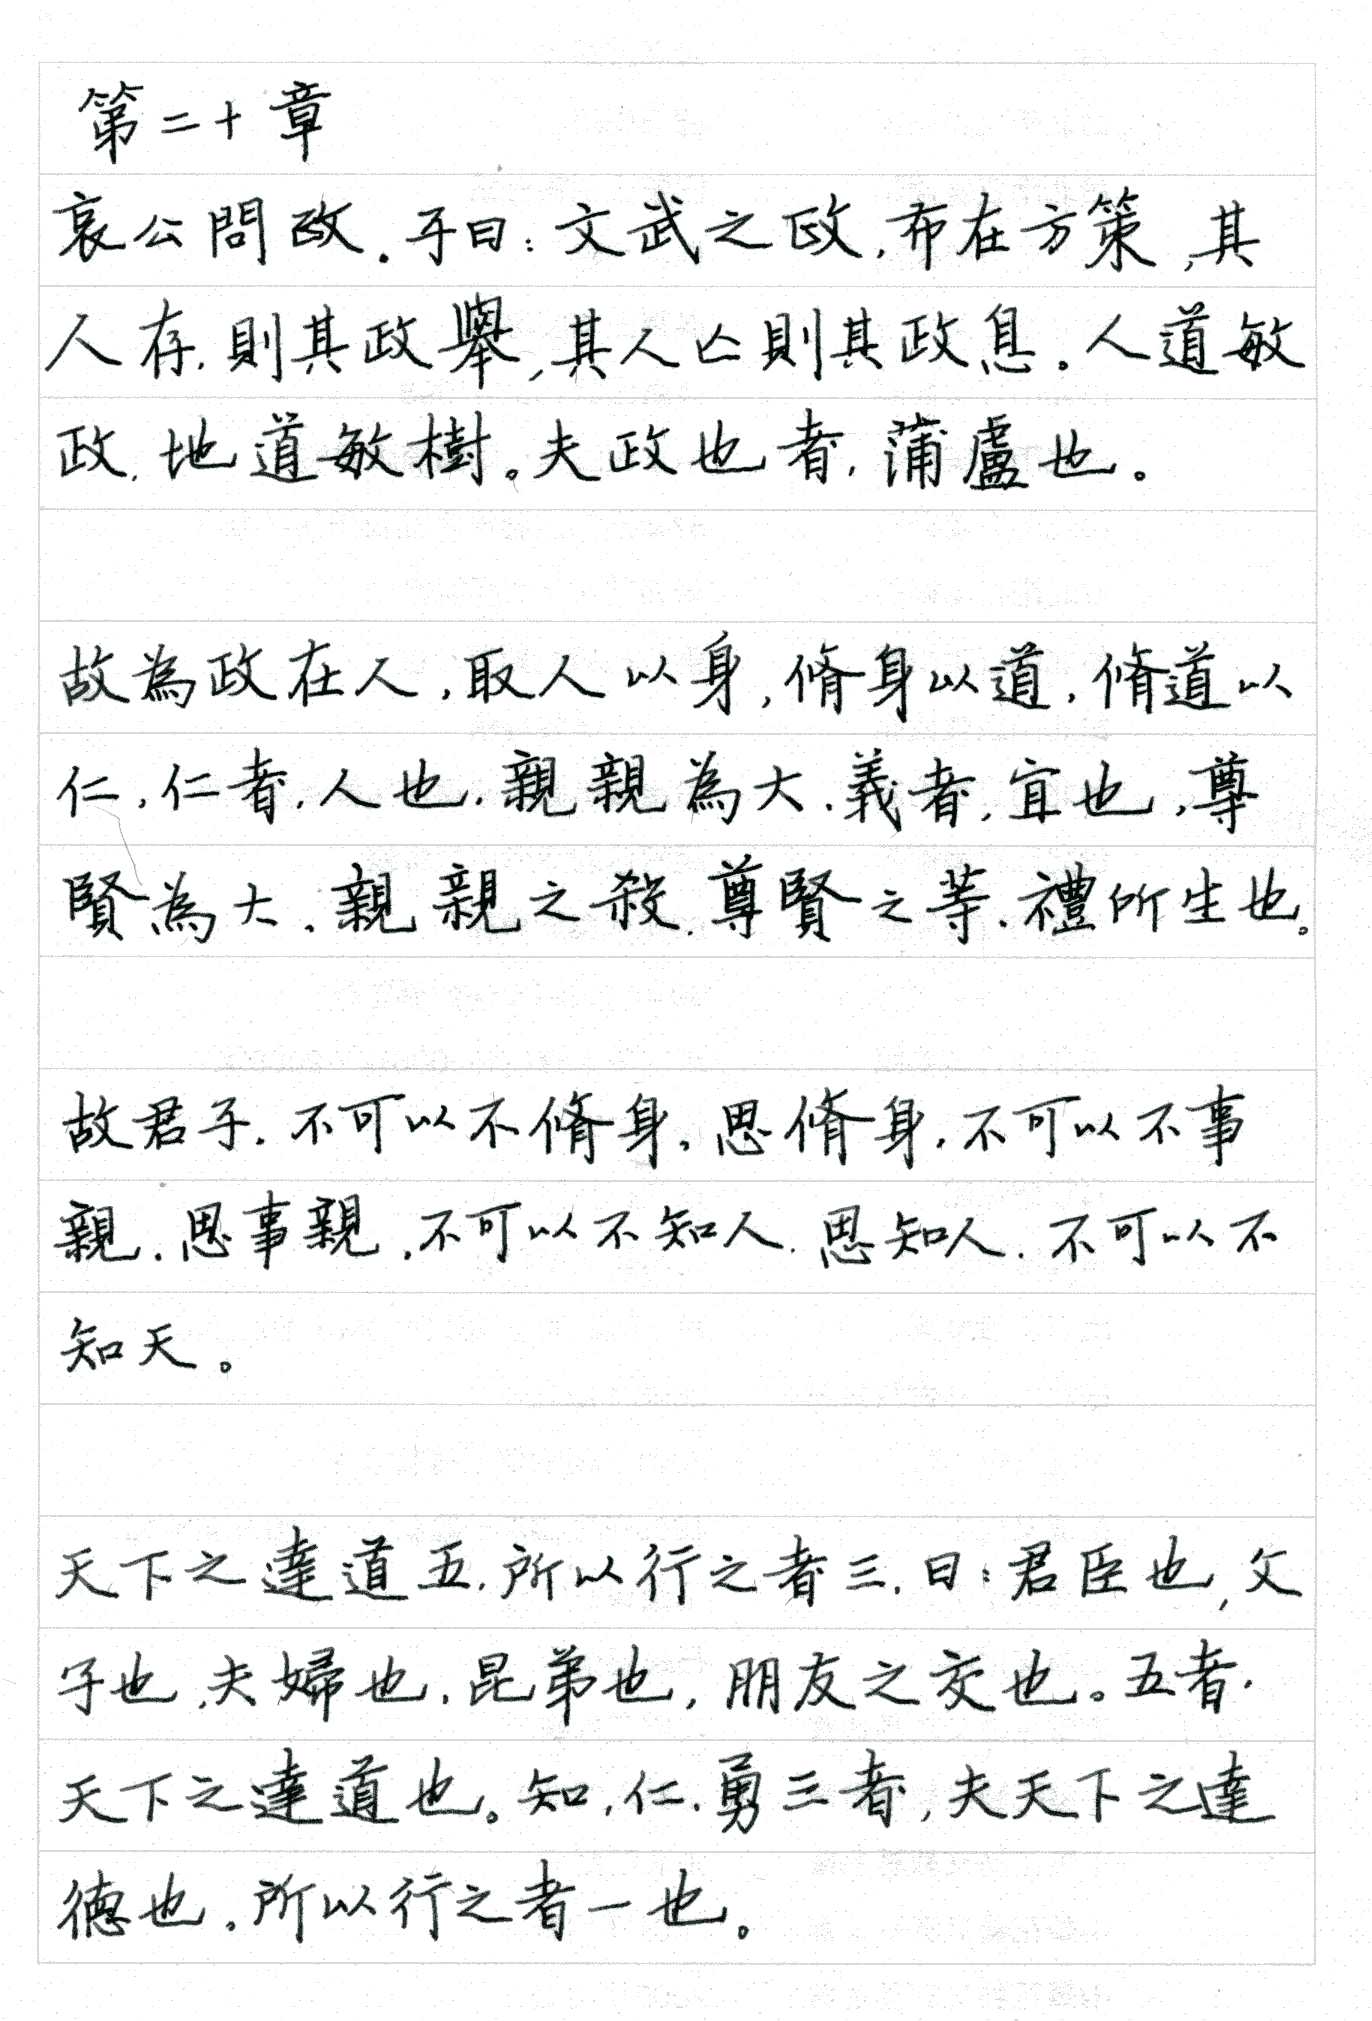 第二十章
哀公問政。子曰：文武之政，布在方策，其
人存，則其政舉，其人亡則其政息。人道敏
政，地道敏樹。夫政也者，蒲盧也。
故為政在人，取人以身，脩身以道，脩道以
仁，仁者，人也，親親為大，義者，宜也，尊
賢為大，親親之殺，尊賢之等，禮所生也。
故君子，不可以不脩身，思脩身，不可以不事
親，思事親，不可以不知人，思知人，不可以不
知天。
天下之達道五，所以行之者三，曰：君臣也，父
子也，夫婦也，昆弟也，朋友之交也。五者，
天下之達道也。知，仁，勇三者，夫天下之達
德也，所以行之者一也。